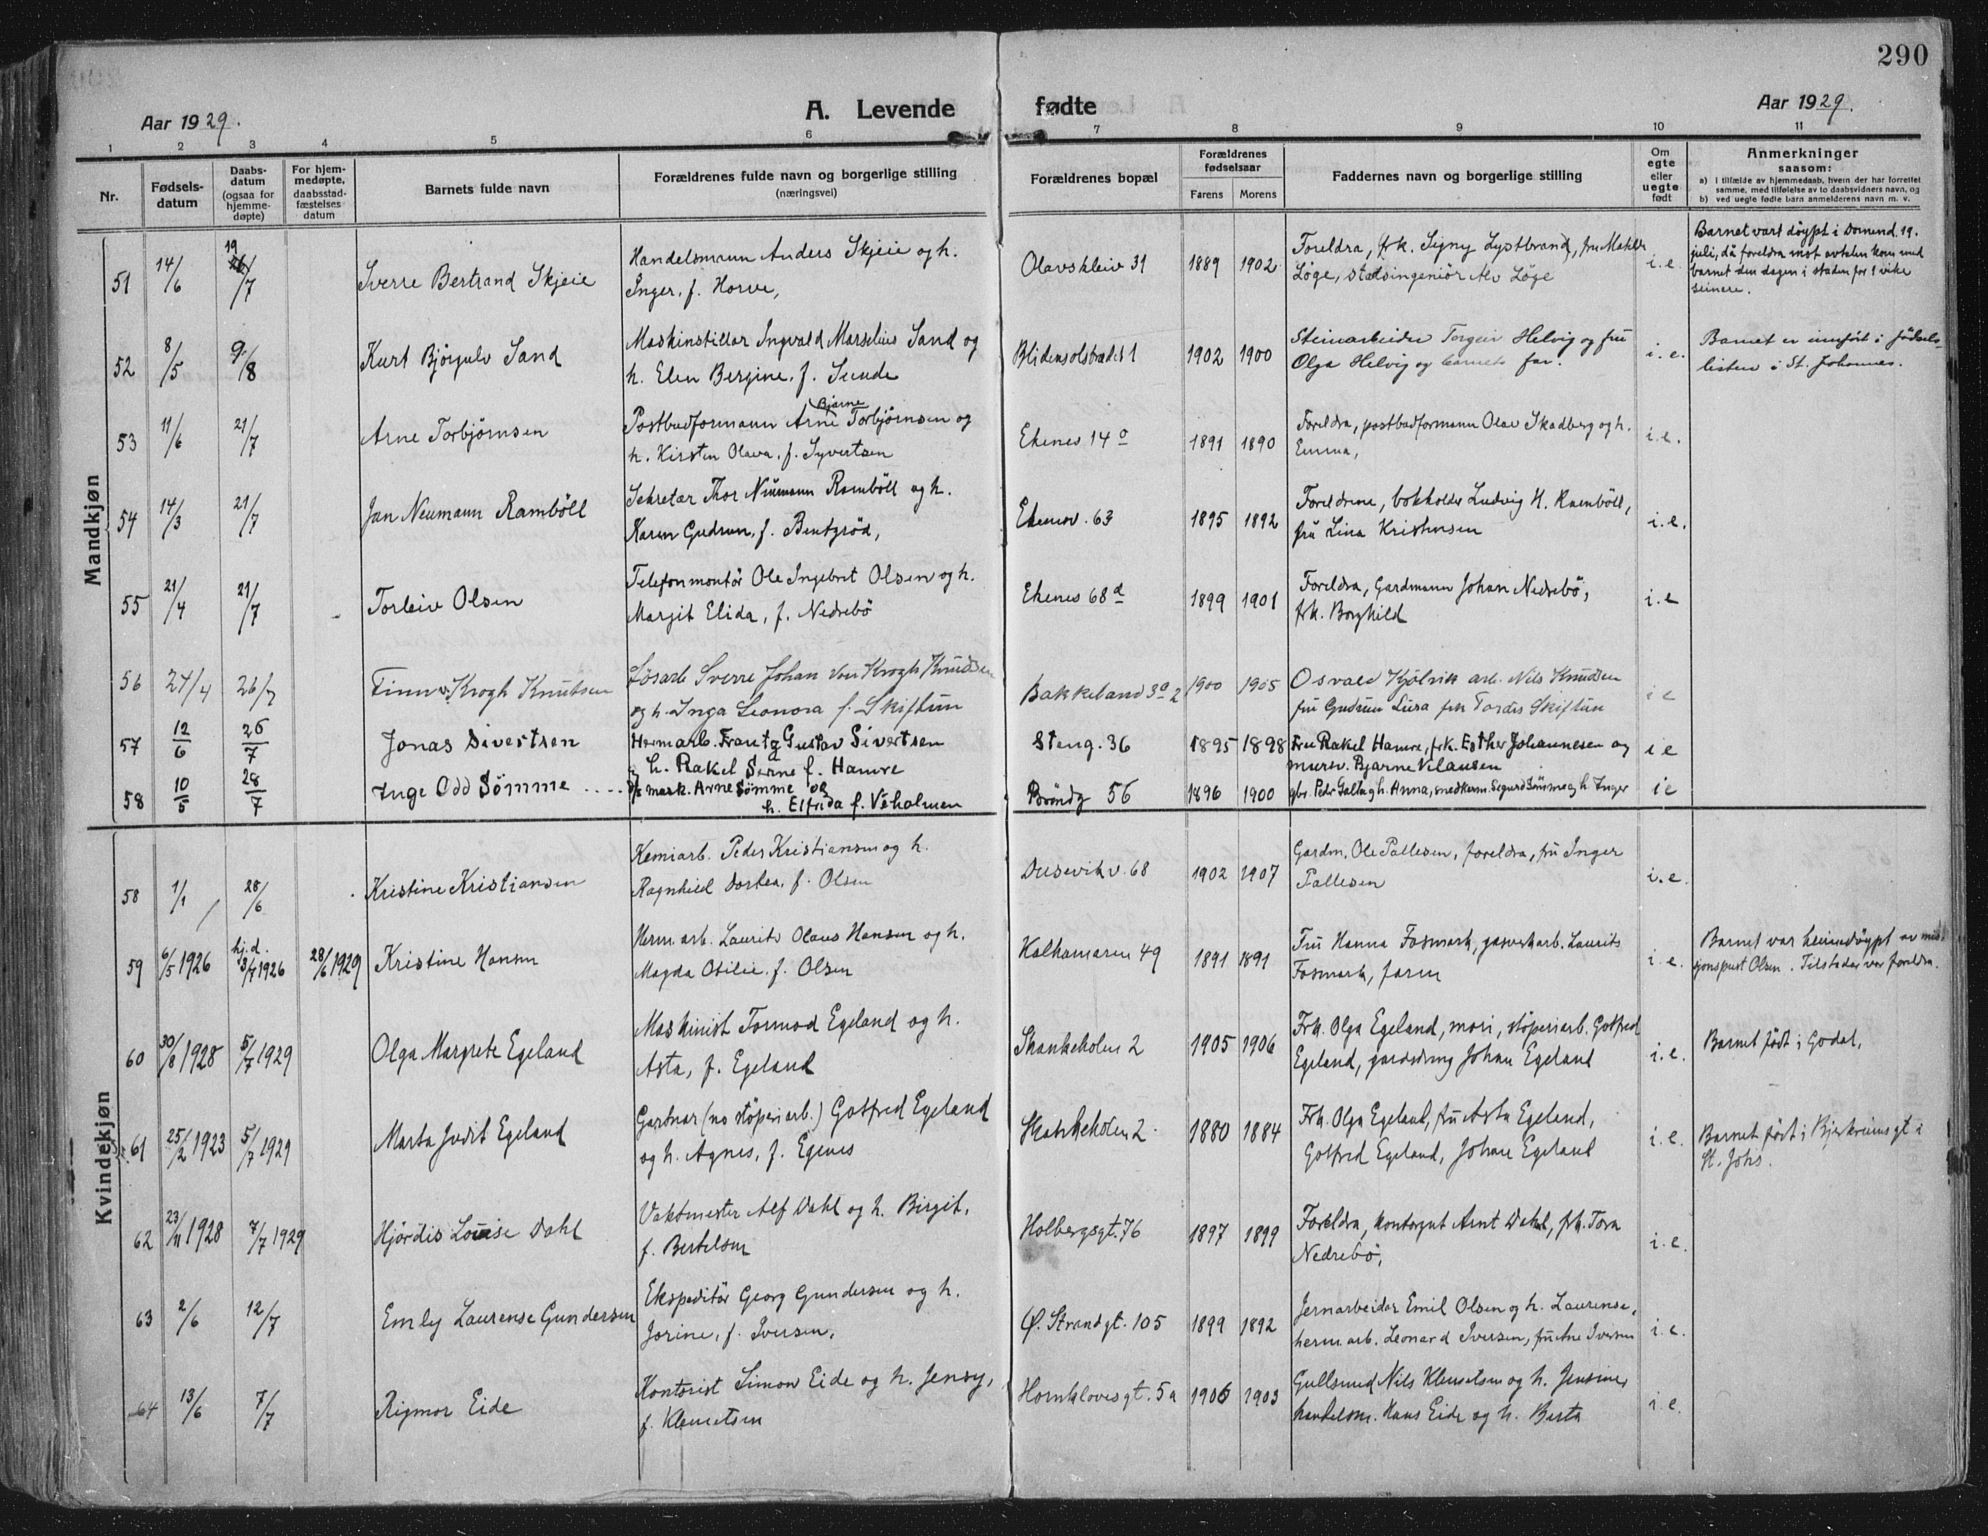 290
Aar 1929.
A. Levende fødte
Aar 1929.
1 2 3 4 5 6 7 8 9 10 11
Nr.
Fødsels-
datum
Daabs-
datum
(ogsaa for
hjemme-
døpte)
For hjem-
medøpte,
daabsstad-
fæstelses
datum
Barnets fulde navn
Forældrenes fulde navn og borgerlige stilling
(næringsvei)
Forældrenes bopæl
Forældrenes
fødselsaar
Farens Morens
Faddernes navn og borgerlige stilling
Om
egte
eller
uegte
født
Anmerkninger
saasom:
a) i tilfælde av hjemmedaab, hvem der har forrettet
samme, med tilføielse av to daabsvidners navn, og
b) ved uegte fødte barn anmelderens navn m. v.
Mandkjøn
51 14/6 19/7 Sverre Bertrand Skjeie
Handelsmann Anders Skjeie og h.
Inger, f. Horve,
Olavskleiv 31 1889 1902
Foreldra, frk. Signy Lystbrand, fru Mathilde
Löge, stadsingeniör Alv Löge
i.e.
Barnet vart döypt i Domend. 19.
juli, då foreldra mot avtalen kom med
barnet den dagen i staden for 1 vike
seinere.
52 8/5 9/8 Kurt Björgulv Sand
Maskinstillar Ingvald Marselius Sand og
h. Elen Bergine, f. Sunde
Blidensolstrædet 1 1902 1900
Steinarbeider Torgeir Helvig og fru
Olga Helvig og barnets far.
i.e.
Barnet er innfört i födsels-
listen i St. Johannes.
53 11/6 21/7 Arne Torbjørnsen
Postbudformann Arne Bjarne Torbjørnsen og
h. Kirsten Olava, f. Syvertsen
Ekenes 14 o 1891 1890
Foreldra, postbudformann Olav Skadberg og h.
Emma,
i.e.
54 14/3 21/7 Jan Neumann Ramböll
Sekretær Thor Neumann Ramböll og h.
Karen Gudrun, f. Bentzröd,
Ekenesv. 63 1895 1892
Foreldrene, bokholder Ludvig H. Ramböll,
fru Lina Kristensen
i.e.
55 21/4 21/7 Torleiv Olsen
Telefonmontör Ole Ingebret Olsen og h.
Margit Elida, f. Nedrebö
Ekenes 68 d 1899 1901
Foreldra, Gardmann Johan Nedrebö,
frk. Borghild
i.e
56 24/4 26/7 Finn v. Krogh Knutsen
Løsarb Sverre Johan von Krogh Knudsen
og h. Inga Leonora f. Skiftun
Bakkeland 3 a 2 1900 1905
Osvald Kjölvik arb. Nils Knudsen
fru Gudrun Lura frk Tordis Skiftun
i e
57 12/6 26/7 Jonas Sivertsen
Hermarb. Frantz Gustav Sivertsen
og h. Rakel Serine f. Hamre
Steng. 36 1895 1898
Fru Rakel Hamre, frk. Esther Johannesen og
mursv. Bjarne Nilausen
i e
58 10/5 28/7 Inge Odd Sømme
mask. Arne Sømme og
h. Elfrida f. Veholmen
Bröndg 56 1896 1900
gbr. Peder Galta og h. Anna, snedkerm. Sigurd Sømme og h Inger
i e
Kvindekjøn
58 1/1 28/6 Kristine Kristiansen
Kemiarb. Peder Kristiansen og h.
Ragnhild Dortea, f. Olsen
Dusevikv. 68 1902 1907
Gardm. Ole Pallesen, foreldra, fru Inger
Pallesen
i.e.
59 6/5 1926 hj.d. 3/7 1926 28/6 1929 Kristine Hansen
Herm.arb. Laurits Olaus Hansen og h.
Magda Otilie, f. Olsen
Kalhamaren 49 1891 1891
Fru Hanna Fosmark, gasverkarb. Laurits
Fosmark, faren
i.e.
Barnet var heimedöypt av mis-
jonsprest Olsen. Tilstades var foreldra.
60 30/8 1928 5/7 1929 Olga Margrete Egeland
Maskinist Tormod Egeland og h.
Asta, f. Egeland
Skankeholen 2 1905 1906
Frk. Olga Egeland, mori, støperiarb. Gotfred
Egeland, gardsdreng Johan Egeland
i.e.
Barnet født i Godal.
61 25/2 1923 5/7 1929 Marta Judit Egeland
Gartnar (no støperiarb.) Gotfred Egeland
og h. Agnes, f. Egenes
Skankeholen 2. 1880 1884
Frk. Olga Egeland, fru Asta Egeland,
Gotfred Egeland, Johan Egeland
i.e.
Barnet født i Bjerkreimsgt i
St. Johs.
62 23/11 1928 7/7 1929 Hjördis Louise Dahl
Vaktmester Alf Dahl og h. Birgit,
f. Bertelsen
Holbergsgt. 76 1897 1899
Foreldra, kontorgut Arnt Dahl, frk. Tora
Nedrebö,
i.e.
63 2/6 12/7 Emly Laurense Gundersen
Ekspeditör Georg Gundersen og h.
Jorine, f. Iversen,
Ø. Strandgt. 105 1899 1892
Jernarbeidar Emil Olsen og h. Laurense,
herm.arb. Leonard Iversen, fru Ane Iversen
i.e.
64 13/6 7/7 Rigmor Eide
Kontorist Simon Eide og h. Jensy,
f. Klemetsen
Hornklovesgt. 5a 1906 1903
Gullsmed Nils Klemetsen og h. Jensine,
handelsm. Hans Eide og h. Berta
i.e.